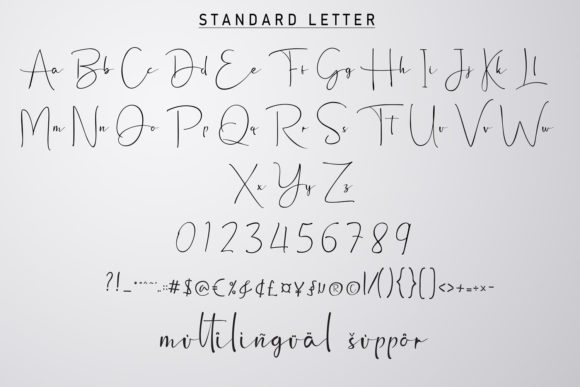 STANDARD LETTER
Aa Bb Cc Dd Ee Ff Gg Hh Ii Jj Kk Ll
Mm Nn Oo Pp Qq Rr Ss Tt Uu Vv Ww
Xx Yy Zz
0123456789
?!_#$@€%&¢£¤¥§®©|/(){}[]<>+=÷×-
mültîlïñgüäl šüppôr